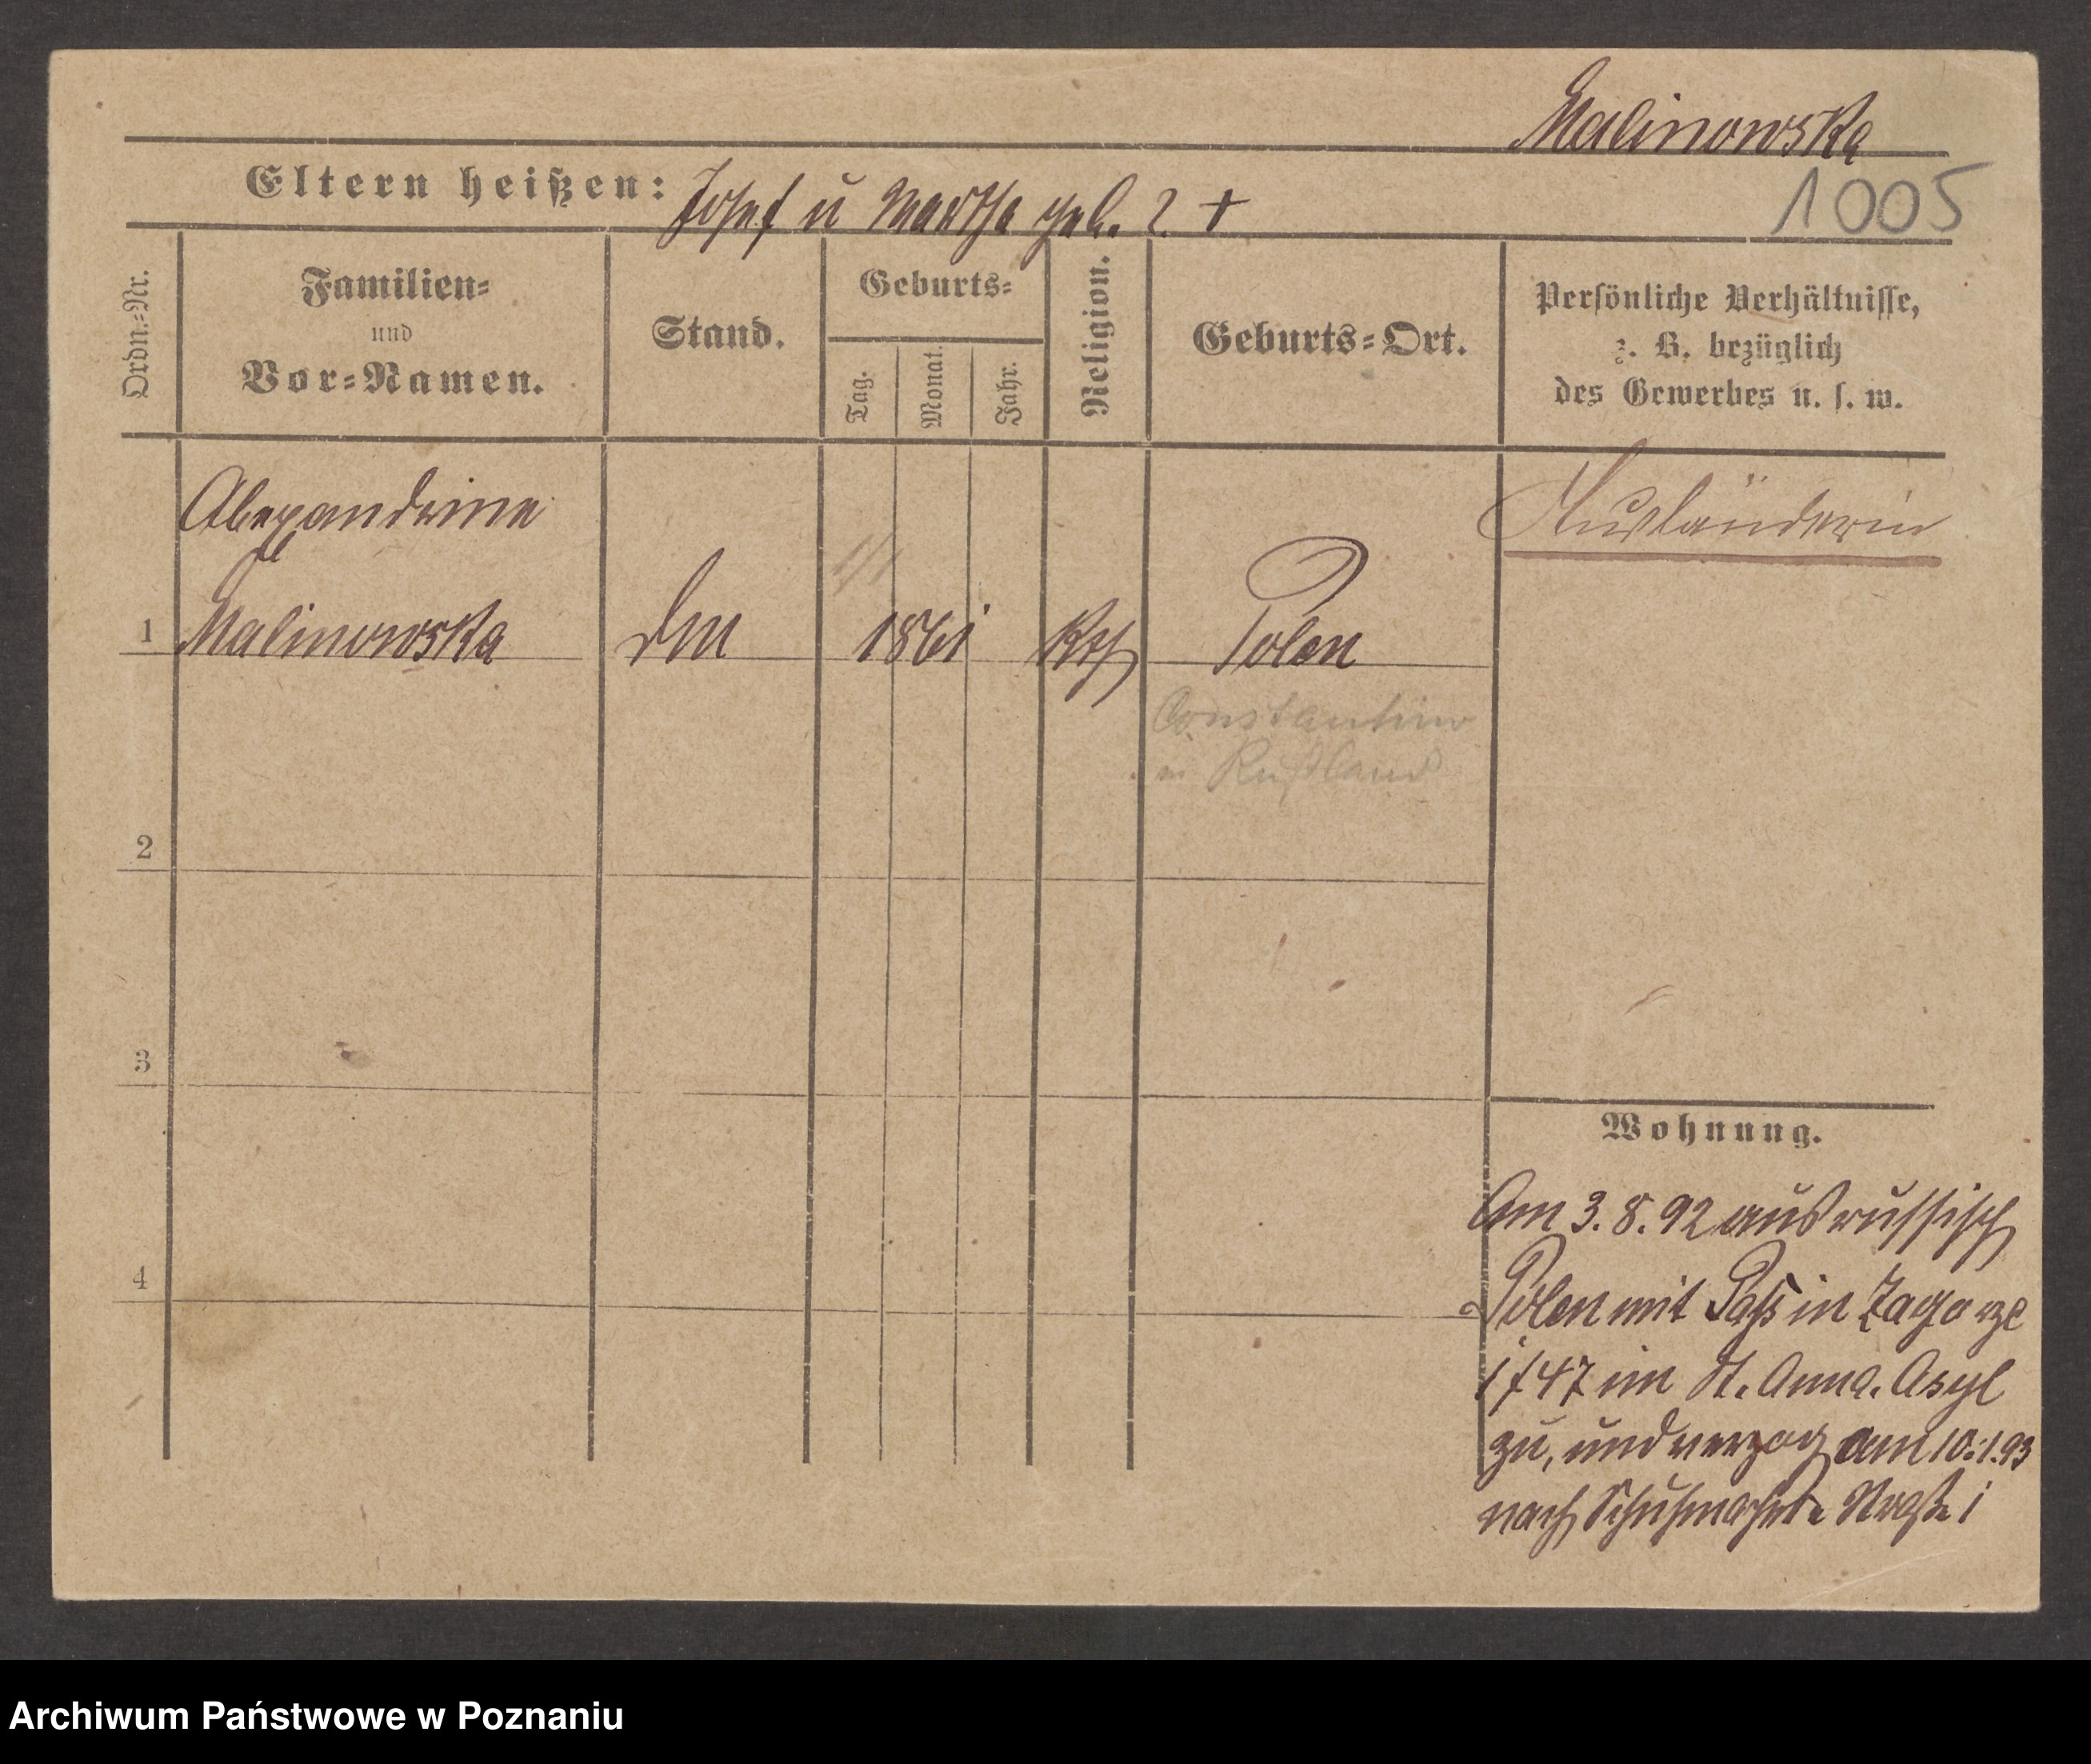 Malinowska
1005
Eltern heißen: Josef u Martha geb. ? +
Ordn.-Nr.
Familien-
und
Vor-Namen.
Stand.
Geburts-
Tag.
Monat.
Jahr.
Religion.
Geburts-Ort.
Persönliche Verhältnisse,
z. B. bezüglich
des Gewerbes u. s. w.
Alexandrine
Ausländerin
1/1
1 Malinowska 1861 Kth Polen
Constantinow
in Rußland
2
3
4
Wohnung.
Am 3. 8. 92 aus russisch
Polen mit Paß in Zagorze
147 im St. Anna. Asyl
zu, und verzog am 10.1.93
nach Schuhmacher Straße 1
Archiwum Państwowe w Poznaniu